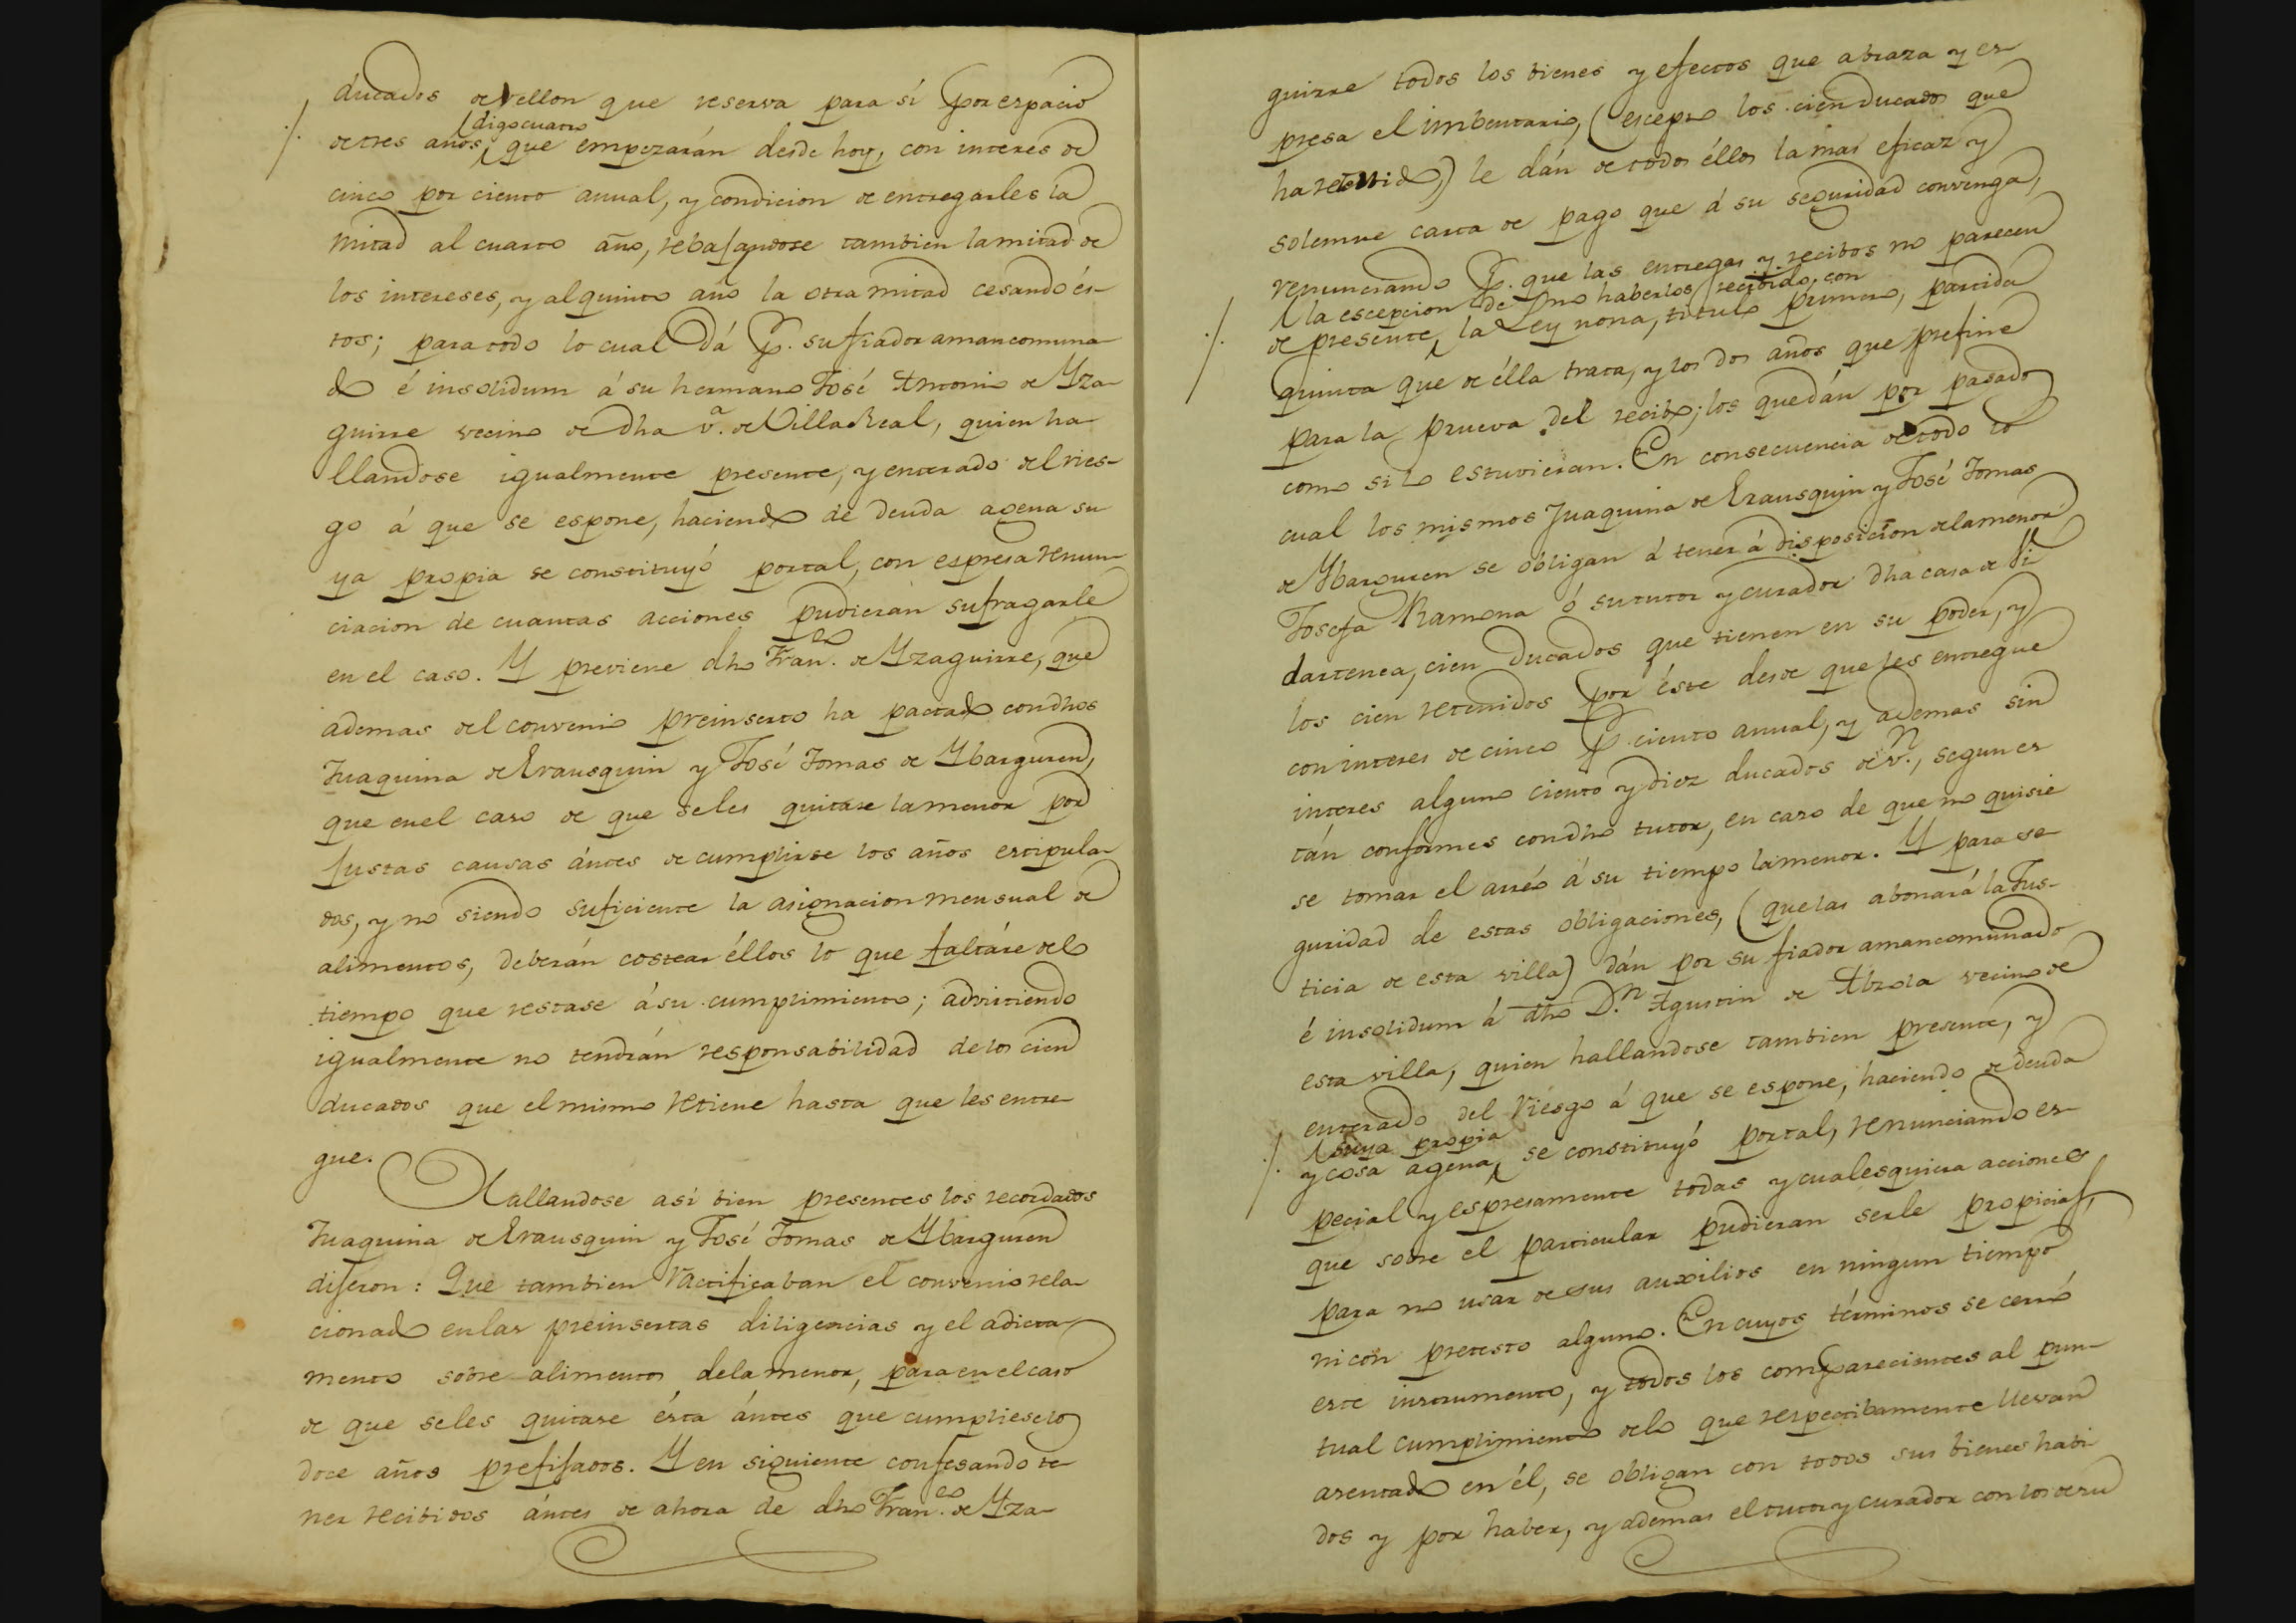 ducados de vellon que reserva para sí por espacio
digo cuatro
de tres años, que empezarán desde hoy, con interes de
cinco por ciento anual, y condicion de entregarles la
mitad al cuarto año, rebajandose tambien la mitad de
los intereses, y al quinto año la otra mitad cesando és-
tos; para todo lo cual dá p.r su fiador amancomuna-
do é insolidum á su hermano José Antonio de Yza-
guirre vecino de dha v.a de Villa Real, quien ha-
llandose igualmente presente, y enterado del ries-
go á que se espone, haciendo de deuda agena su-
ya propia se constituyó por tal, con espresa renun-
ciacion de cuantas acciones pudieran sufragarle
en el caso. Y previene dho Fran.co de Yzaguirre, que
ademas del convenio preinserto ha pactado con dhos
Juaquina de Erausquin y José Tomas de Ybarguren,
que en el caso de que se les quitase la menor por
justas causas ántes de cumplirse los años estipula-
dos, y no siendo suficiente la asignacion mensual de
alimentos, deberán costear éllos lo que faltáre del
tiempo que restase á su cumplimiento; advirtiendo
igualmente no tendrán responsabilidad de los cien
ducados que el mismo retiene hasta que les entre-
gue.
Hallandose así bien presentes los recordados
Juaquina de Erausquin y José Tomas de Ybarguren
dijeron: Que tambien ractificaban el convenio rela-
cionado en las preinsertas diligencias y el adicta-
mento sobre alimentos de la menor, para en el caso
de que se les quitase ésta ántes que cumpliese los
doce años prefijados. Y en siguiente confesando te-
ner recibidos ántes de ahora de dho Fran.co de Yza-
guirre todos los bienes y efectos que abraza y es-
presa el imbentario, (escepto los cien ducados que
ha retenido,) le dán de todos éllos la mas eficaz y
solemne carta de pago que á su seguridad convenga,
renunciando p.r que las entregas y recibos no parecen
la escepcion de no haberlos recibido, con
de presente, la Ley nona, titulo primero, partida
quinta que de élla trata, y los dos años que prefine
para la prueva del recibo; los que dán por pasados
como si lo estuvieran. En consecuencia de todo lo
cual los mismos Juaquina de Erausquin y José Tomas
de Ybarguren se obligan á tener á disposicion de la menor
Josefa Ramona ó su tutor y curador dha casa de Vi-
dartenea, cien ducados que tienen en su poder, y
los cien retenidos por éste desde que les entregue
con interes de cinco p.r ciento anual, y ademas sin
interes alguno ciento y diez ducados de v.n, segun es-
tán conformes con dho tutor, en caso de que no quisie-
se tomar el arréo á su tiempo la menor. Y para se-
guridad de estas obligaciones, (que las abonará la Jus-
ticia de esta villa) dán por su fiador amancomunado
é insolidum á dho D.n Agustin de Abzola vecino de
esta villa, quien hallandose tambien presente, y
enterado del riesgo á que se espone, haciendo de deuda
suya propia
y cosa agena, se constituyó por tal, renunciando es-
pecial y espresamente todas y cualesquiera acciones
que sobre el particular pudieran serle propicias,
para no usar de sus auxilios en ningun tiempo
ni con pretesto alguno. En cuyos términos se cerró
este instrumento, y todos los comparecientes al pun-
tual cumplimiento de lo que respectibamente llevan
asentado en él, se obligan con todos sus bienes habi-
dos y por haber, y ademas el tutor y curador con los de su